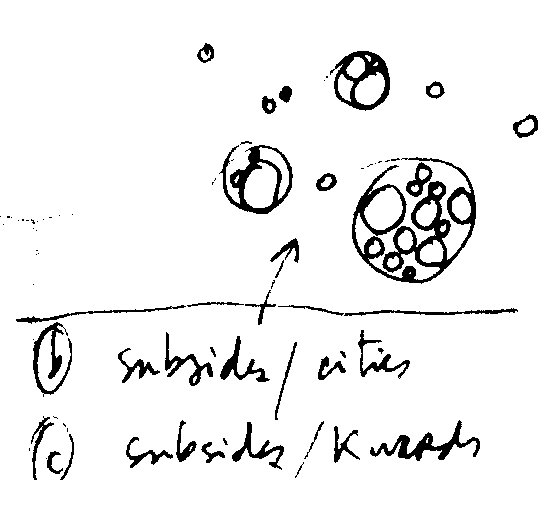 (b) subsides/cities
(c) subsides/Kwards